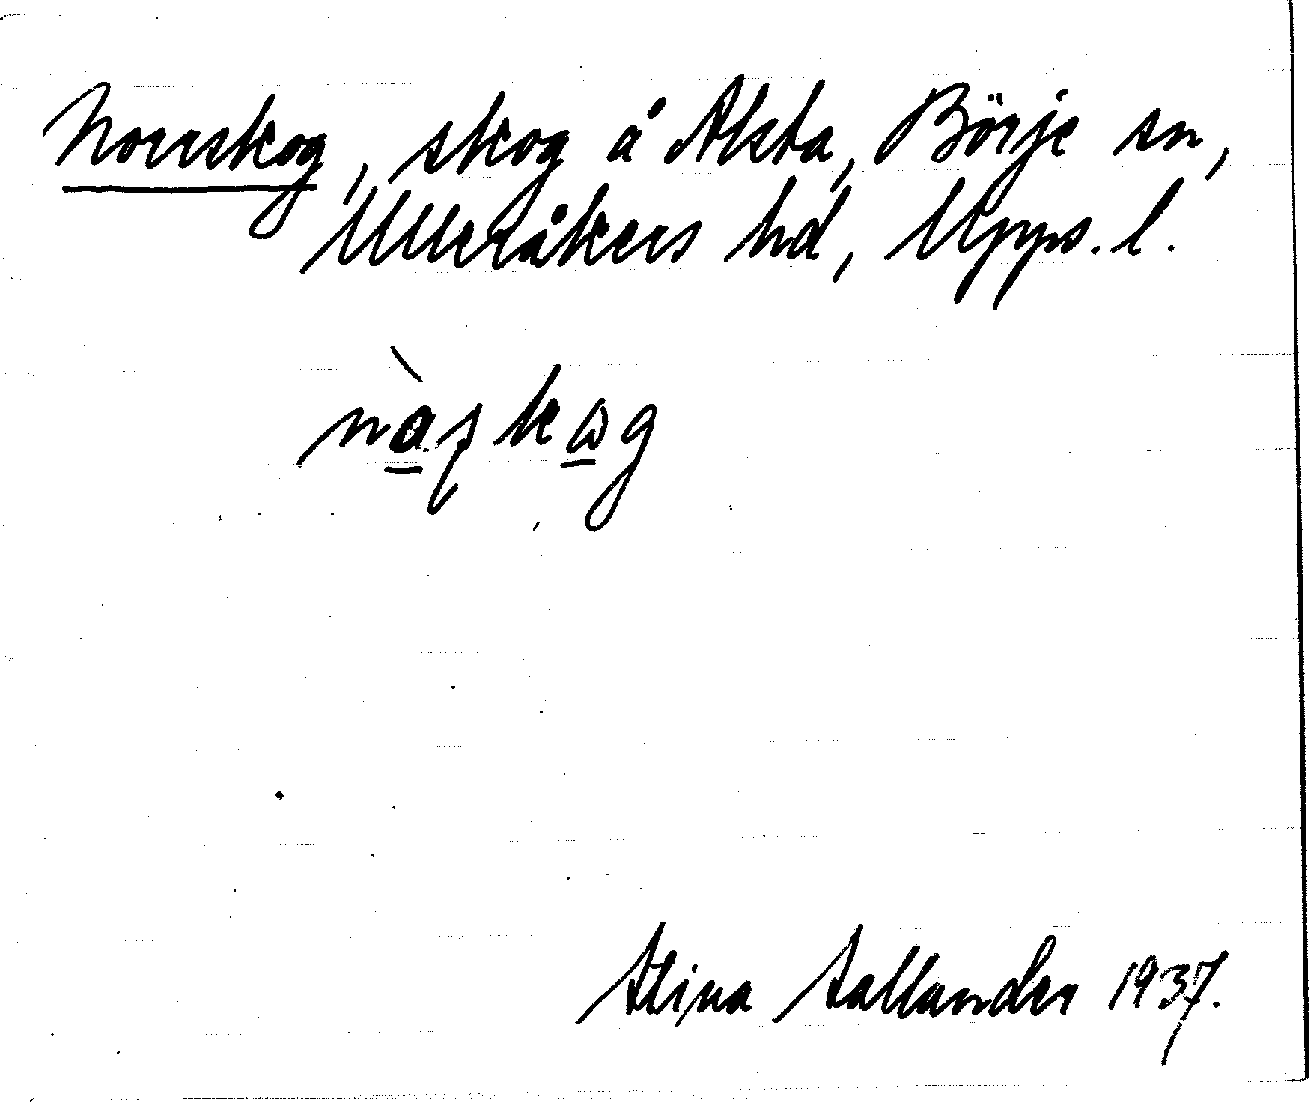 Norrskog, skog å Aksta, Börje sn,
Ulleråkers hd, Upps. l.
Stina Sallander 1937.